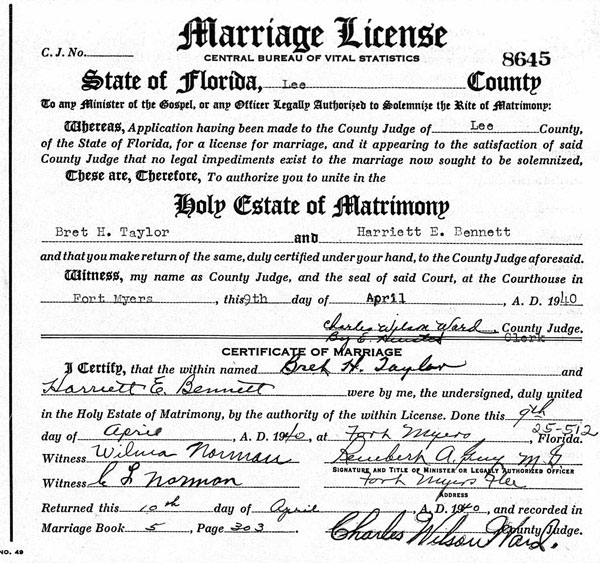 Marriage License
CENTRAL BUREAU OF VITAL STATISTICS
C. J. No.
8645
State of Florida, Lee County
To any Minister of the Gospel, or any Officer Legally Authorized to Solemnize the Rite of Matrimony:
Whereas, Application having been made to the County Judge of Lee County,
of the State of Florida, for a license for marriage, and it appearing to the satisfaction of said
County Judge that no legal impediments exist to the marriage now sought to be solemnized,
These are, Therefore, To authorize you to unite in the
Holy Estate of Matrimony
Bret H. Taylor and Harriett E. Bennett
and that you make return of the same, duly certified under your hand, to the County Judge aforesaid.
Witness, my name as County Judge, and the seal of said Court, at the Courthouse in
Fort Myers, this 9th day of April, A. D. 1940
Charles Wilson Ward, County Judge.
By E. Clerk
CERTIFICATE OF MARRIAGE
I Certify, that the within named Bret H. Taylor and
Harriett E. Bennett were by me, the undersigned, duly united
in the Holy Estate of Matrimony, by the authority of the within License. Done this 9th
25-512
day of April, A. D. 1940, at Fort Myers, Florida.
Witness Wilma Norman
A.
SIGNATURE AND TITLE OF MINISTER OR LEGALLY AUTHORIZED OFFICER
Witness C L Norman Fort Myers Fla
ADDRESS
Returned this 10th day of April, A. D. 1940, and recorded in
Marriage Book 5, Page 303
Charles Wilson Ward. County Judge.
NO. 49